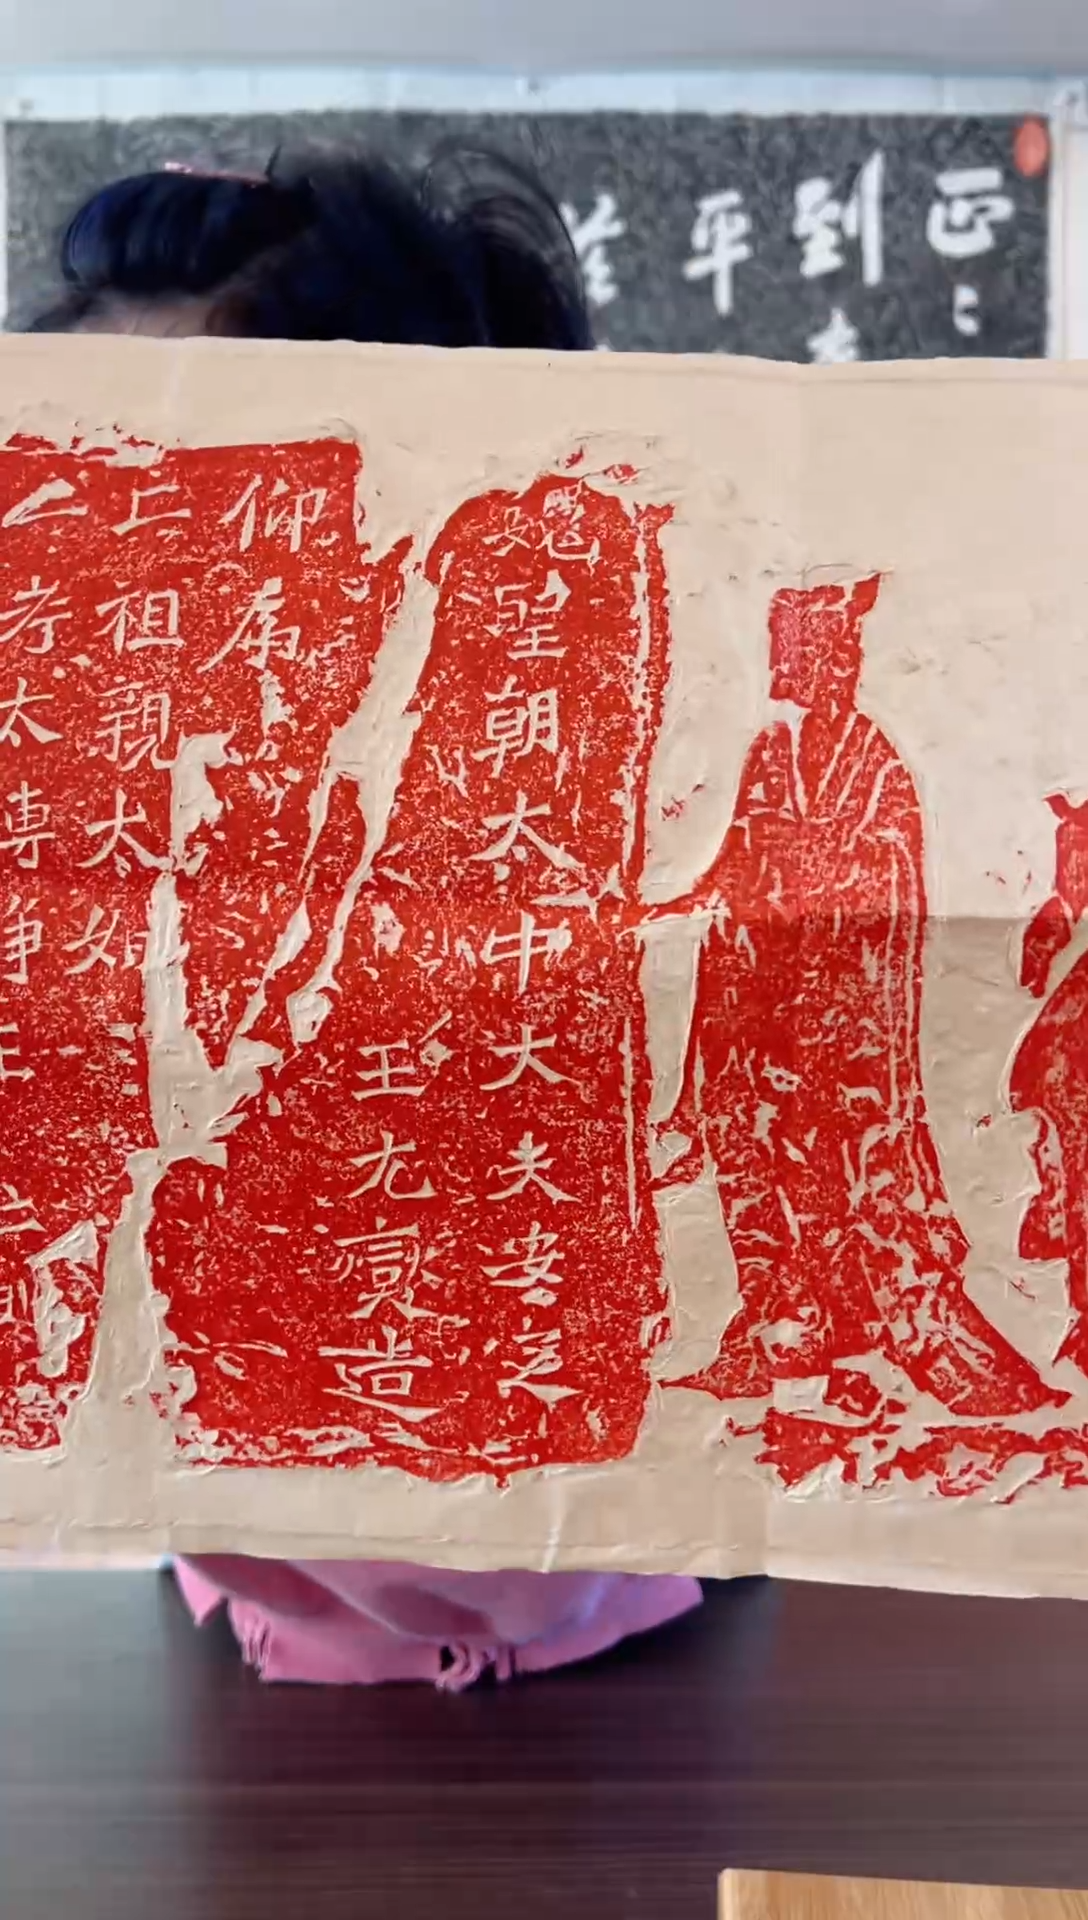 正
到
平
魏聖朝太中大夫安定
王元燮造
仰為
亡祖親太妃
亡考太傅静王